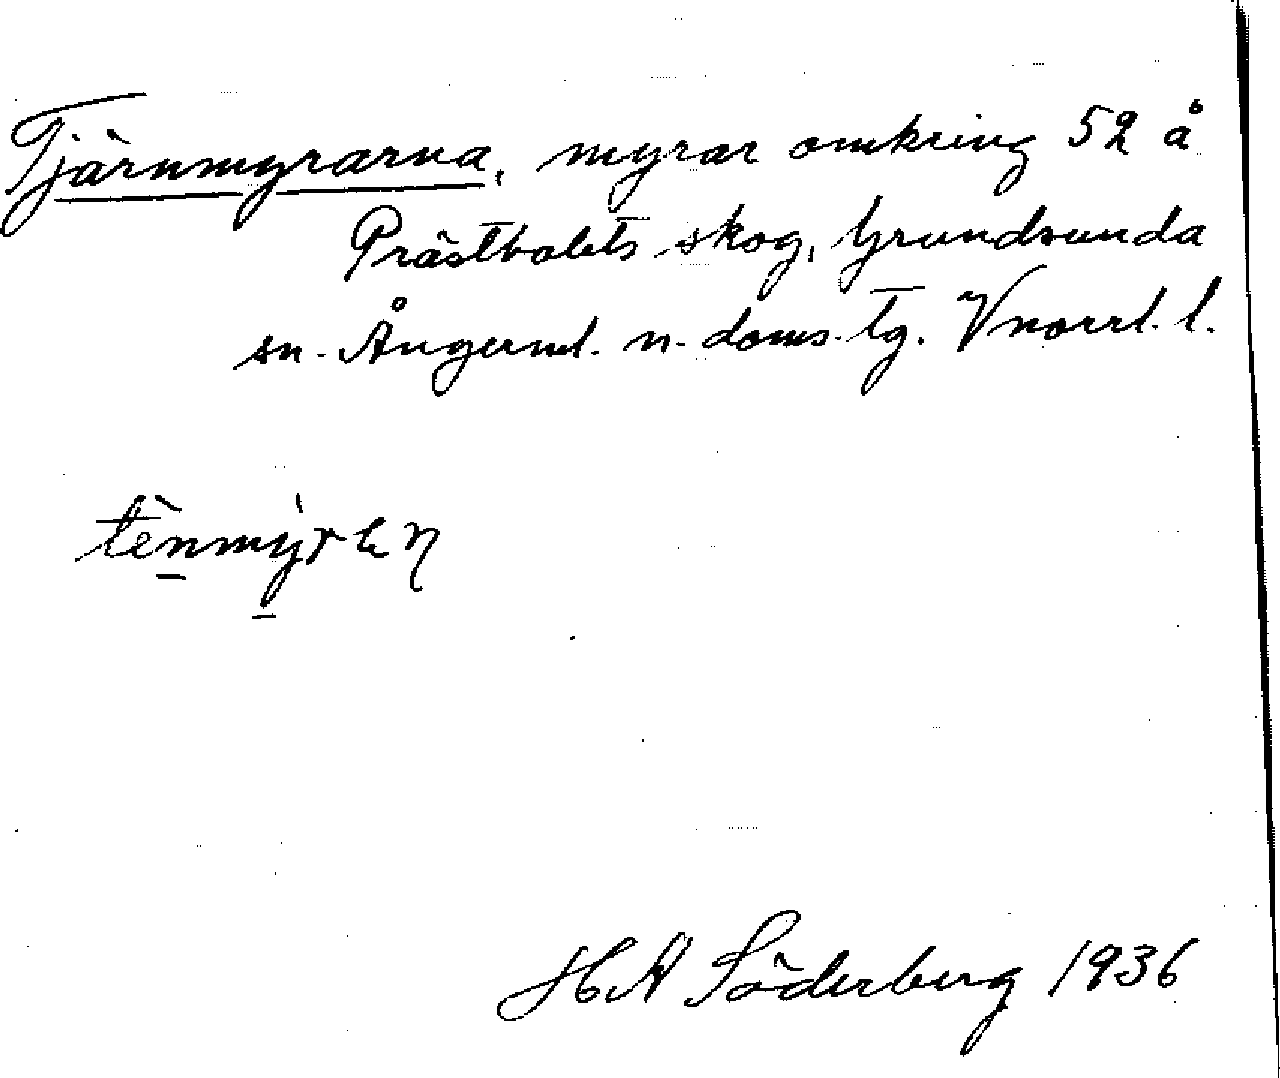 Tjärnmyrarna, myrar omkring 52 å
Prästbolets skog, Grundsunda
sn. Ångerml. n. doms. tg. Vnorrl. l.
H A Söderberg 1936